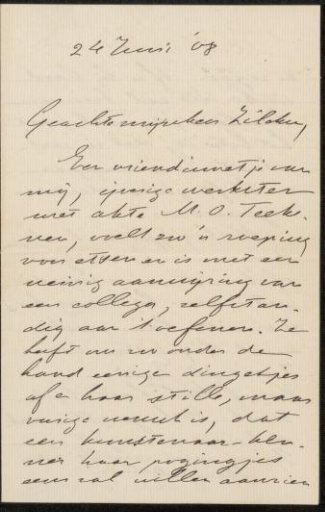 24 Juni '08
Geachte mijnheer Zilcken,
Een vriendinnetje van
mij, ijverige werkster
met akte M. O. Teeke-
nen, voelt zoo'n roeping
voor etsen en is met een
weinig aanwijzing van
een collega, zelfstan-
dig aan 't oefenen. Ze
heeft nu zoo onder de
hand eenige dingetjes
af en haar stille, maar
vurige wensch is, dat
een kunstenaar-ken-
ner haar pogingjes
eens zal willen aanzien